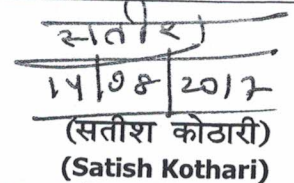 सतीश
14/08/2017
(सतीश कोठारी)
(Satish Kothari)